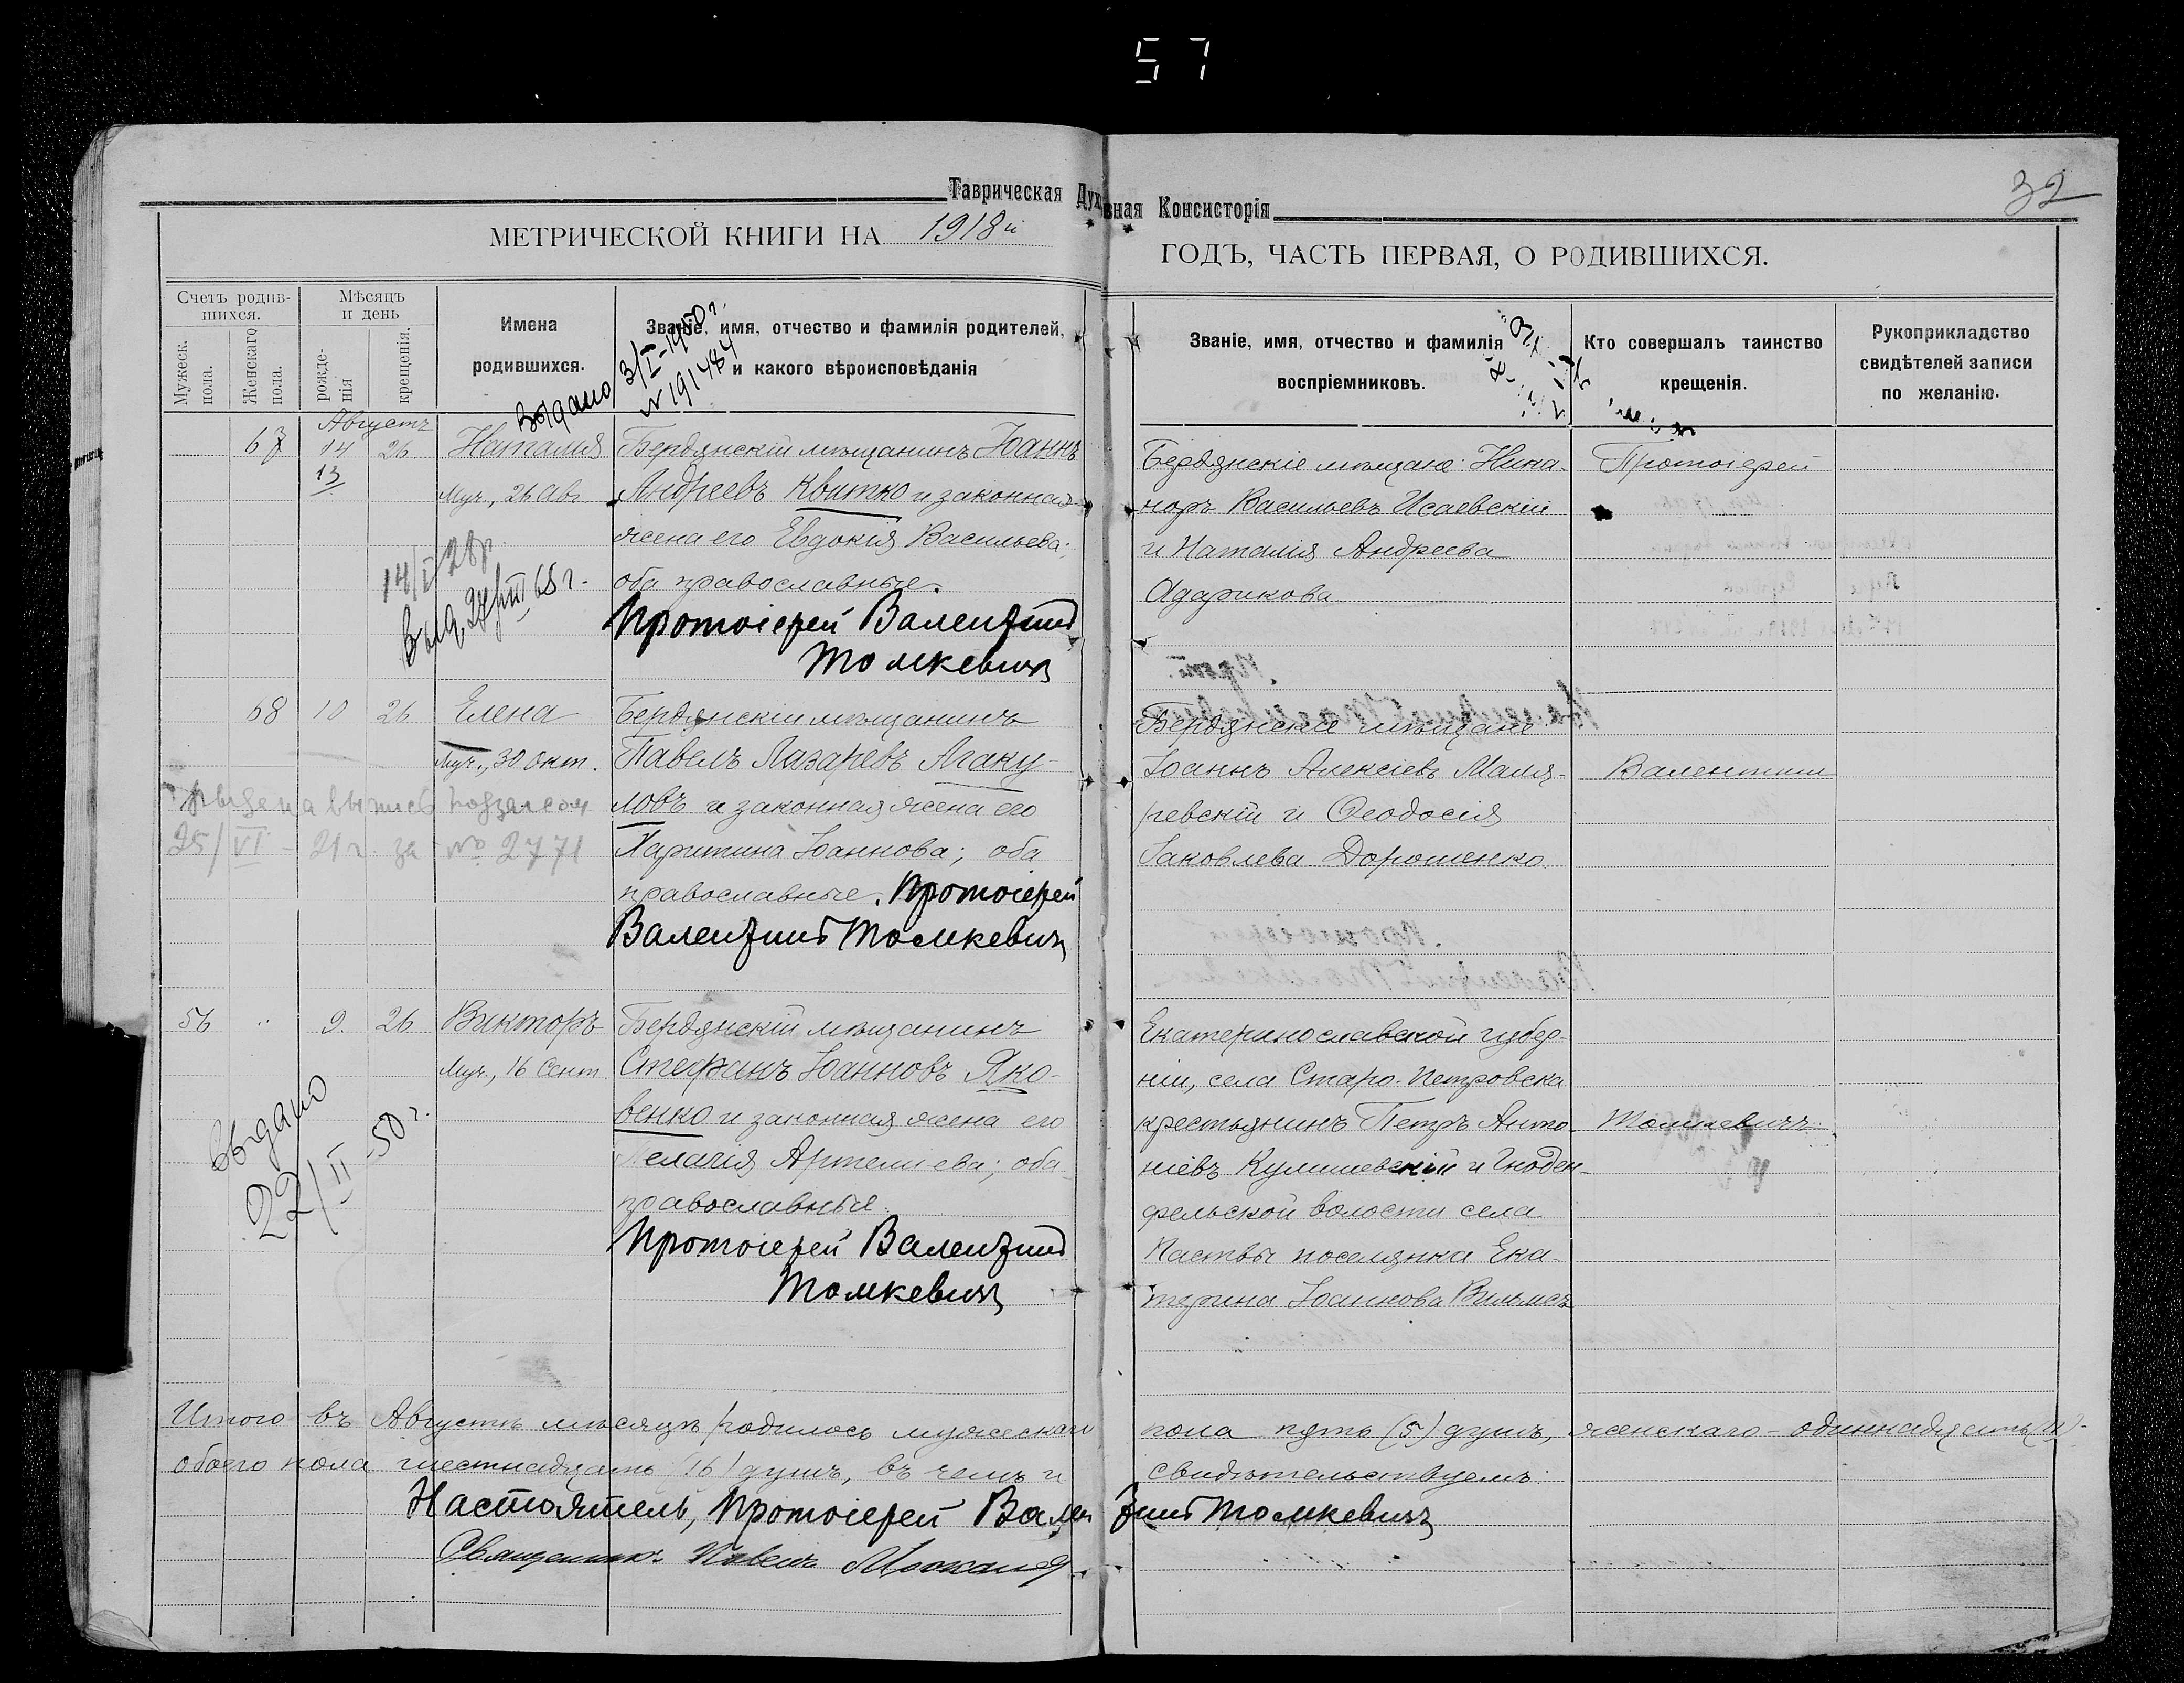 57
Таврическая Дух
вная Консисторія
32
МЕТРИЧЕСКОЙ КНИГИ НА 1918й
ГОДЪ, ЧАСТЬ ПЕРВАЯ, О РОДИВШИХСЯ.
Счетъ родив-
шихся.
Мужеск.
пола.
Женскаго
пола.
Мѣсяцъ
и день
рожде-
нія
крещенія.
Имена
родившихся.
Званіе, имя, отчество и фамилія родителей,
и какого вѣроисповѣданія
Званіе, имя, отчество и фамилія
воспріемниковъ.
Кто совершалъ таинство
крещенія.
Рукоприкладство
свидѣтелей записи
по желанію.
Выдано 3/I-1950 г.
№ 19148
Августъ
67 14 26 Наталия Бердянскій мѣщанинъ Іоаннъ
13
Муч., 26 Авг. Андреевъ Квитко и законная
жена его Евдокія Васильева;
оба православные.
14/I 28 г.
Выд. 24/III 65 г.
Протоіерей Валентинъ
Томкевичъ
Бердянскіе мѣщане: Ника-
норъ Васильевъ Исаевскій
и Наталія Андреева
Адарикова
Протоіерей
68 10 26 Елена Бердянскій мѣщанинъ
Муч., 30 Окт. Павелъ Лазаревъ Агаку-
ловъ и законная жена его
Харитина Іоаннова; оба
православные. Протоіерей
Валентинъ Томкевичъ
выпись
25/VI - 21 г. за № 2771
Бердянскіе мѣщане
Іоаннъ Алексіевъ Маля-
ревскій и Ѳеодосія
Іаковлева Дорошенко
Валентинъ
56 " 9. 26 Викторъ Бердянскій мѣщанинъ
Муч., 16 Сент. Стефанъ Іоанновъ Яко-
венко и законная жена его
Пелагія Артемиева; оба
православные.
Протоіерей Валентинъ
Томкевичъ
Выдано
22/II-50 г.
Екатеринославской губер-
ніи, села Старо-Петровска
крестьянинъ Петръ Анто-
ніевъ Кулишевскій и Гнаден-
фельской волости села
Паствы поселянка Ека-
терина Іоаннова Вильмсъ
Томкевичъ
Итого въ Августѣ мѣсяцѣ родилось мужескаго пола пять (5) душъ, женскаго - одиннадцать (11) -
обоего пола шестнадцать (16) душъ, въ чемъ и свидѣтельствуемъ:
Настоятель, Протоіерей Валентинъ Томкевичъ
Священникъ Павелъ